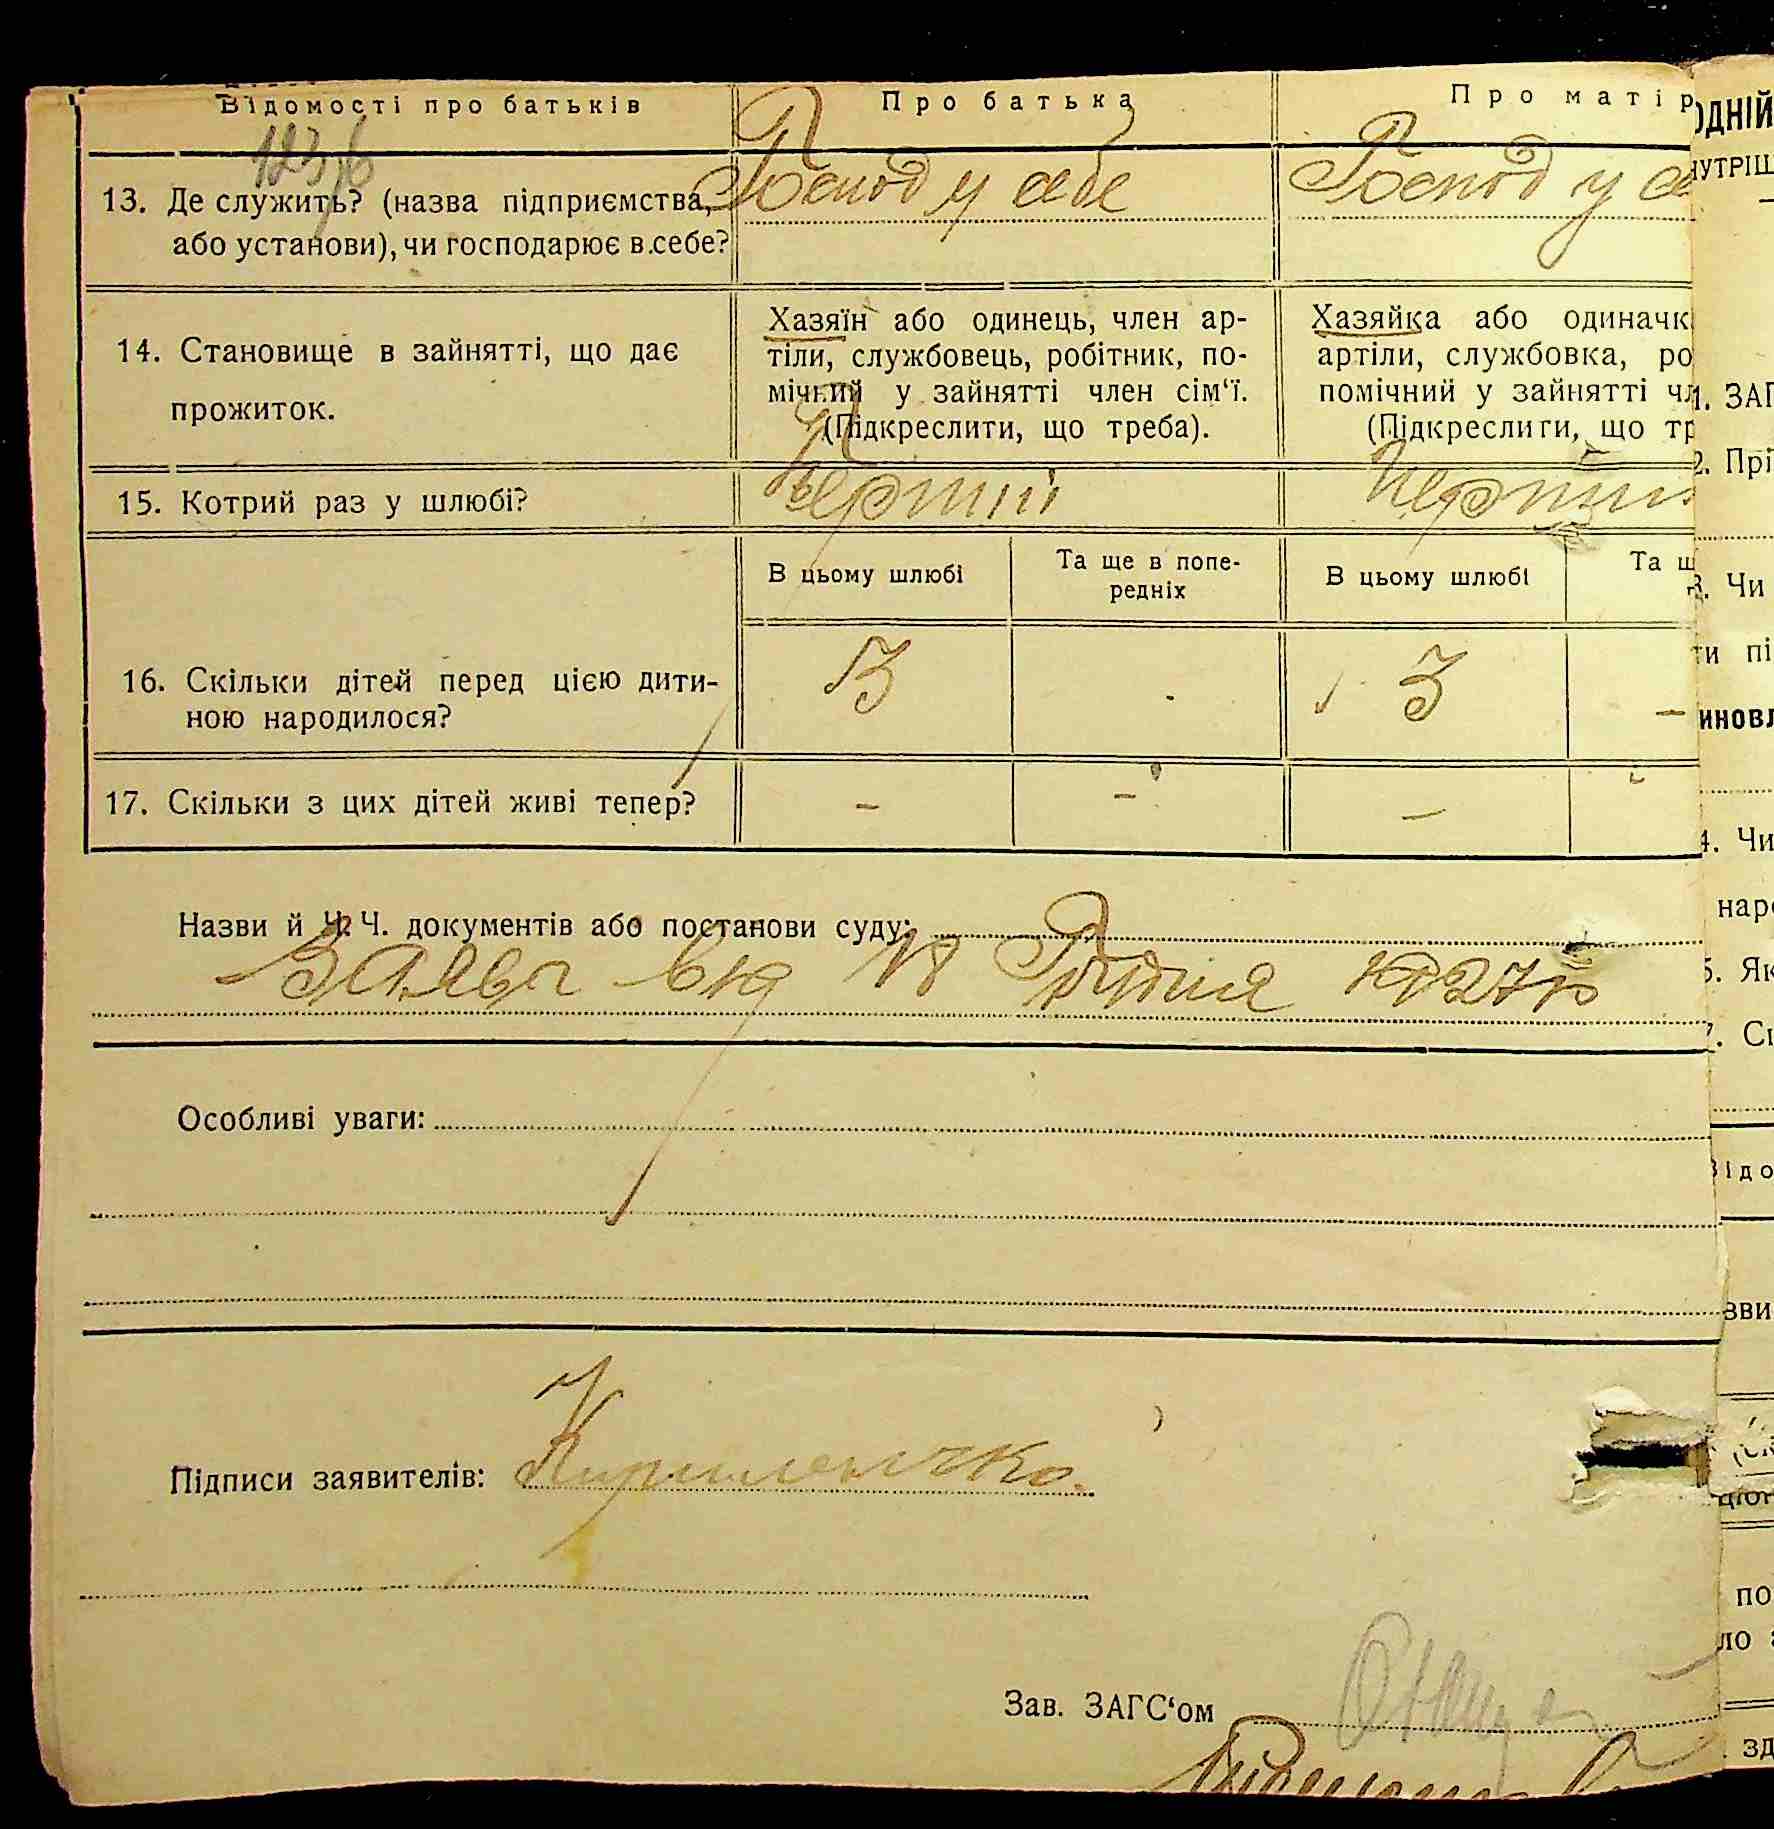 Відомості про батьків
Про батька
Про матір
13. Де служить? (назва підприємства,
або установи), чи господарює в себе?
Господ у себе
Господ у се
14. Становище в зайнятті, що дає
прожиток.
Хазяїн або одинець, член ар-
тіли, службовець, робітник, по-
мічний у зайнятті член сім'ї.
(Підкреслити, що треба).
Хазяйка або одиначк
артіли, службовка, ро
помічний у зайнятті чл
(Підкреслити, що тр
15. Котрий раз у шлюбі?
Перший
Перший
В цьому шлюбі
Та ще в попе-
редніх
В цьому шлюбі
Та щ
16. Скільки дітей перед цією дити-
ною народилося?
3
3 –
17. Скільки з цих дітей живі тепер?
– – –
Назви й Ч.Ч. документів або постанови суду:
Заява від 18 Грудня 1927р
Особливі уваги:
Підписи заявителів:
Зав. ЗАГС'ом
ОДНІЙ
НУТРІШ
1. ЗАГ
2. Прі
3. Чи
ти пі
иновл
4. Чи
наро
5. Як
7. Ск
Відо
зви
по
ло
зд